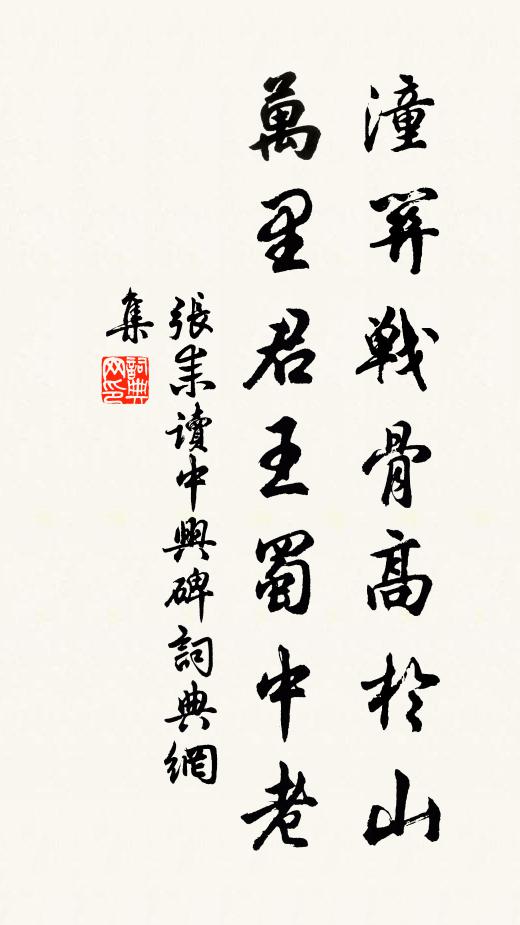 潼關戰骨高於山
萬里君王蜀中老
張耒讀中興碑詞典網
集
詞典
网印